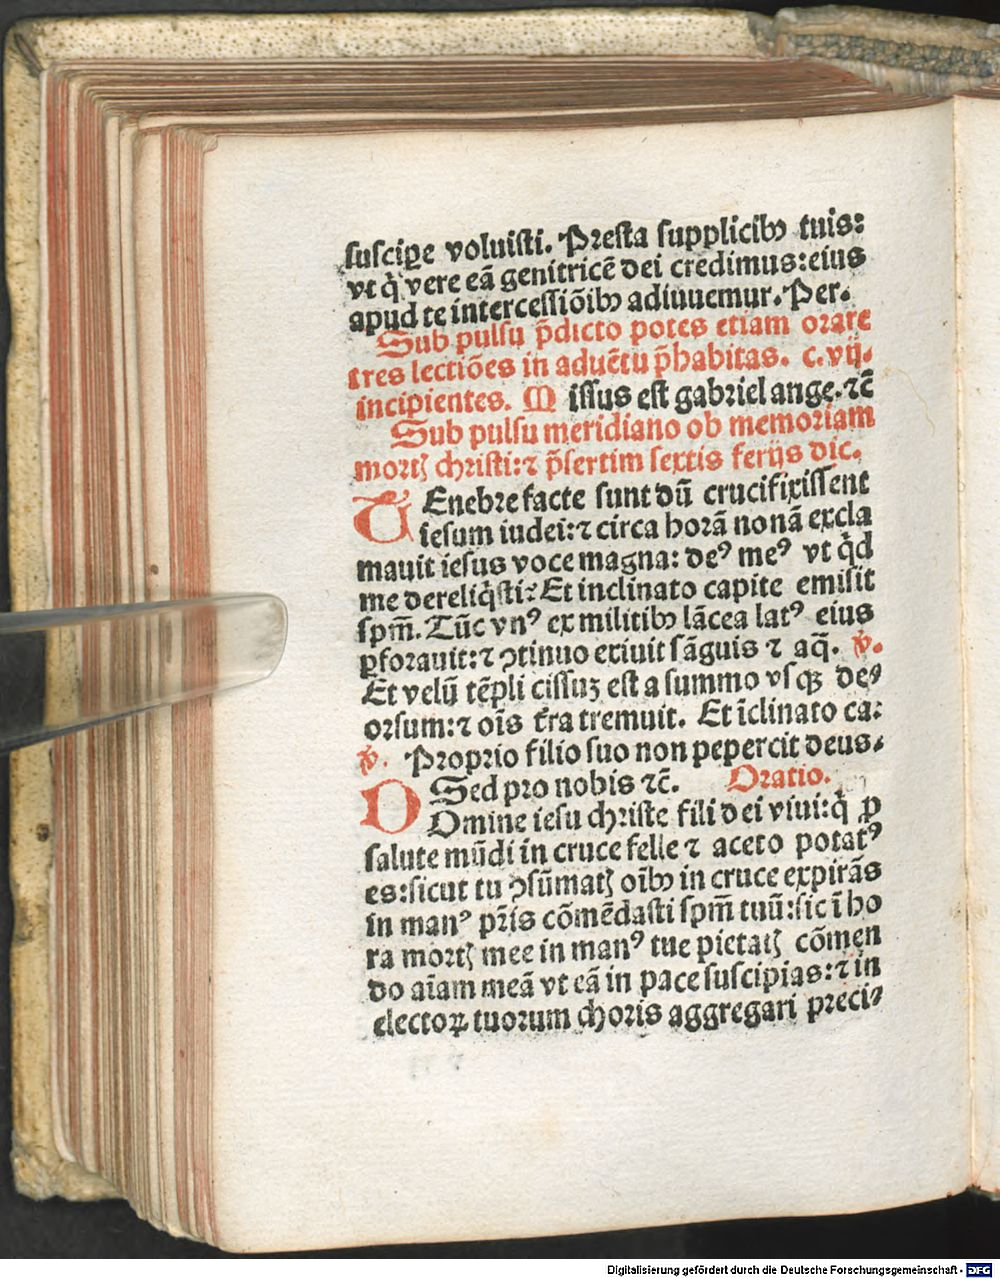 suscipe voluisti. Presta supplicibꝰ tuis:
vt q̇ vere eã genitricẽ dei credimus: eius
apud te intercessiõibꝰ adiuuemur. Per.
Sub pulsu p̃dicto potes etiam orare
tres lectiões in aduẽtu p̃habitas. c. vij.
incipientes. M issus est gabriel ange. ⁊c̃
Sub pulsu meridiano ob memoriam
mortꝭ christi: ⁊ p̃sertim sextis ferijs dic.
TEnebre facte sunt dũ crucifixissent
iesum iudei: ⁊ circa horã nonã excla
mauit iesus voce magna: deꝰ meꝰ vt q̇d
me dereliq̇sti? Et inclinato capite emisit
spm̃. Tũc vnꝰ ex militibꝰ lãcea latꝰ eius
ꝑforauit: ⁊ ꝯtinuo exiuit sãguis ⁊ aq̃. ꝟ.
Et velũ tẽpli cissuꝫ est a summo vsqꝫ de⸗
orsum: ⁊ oĩs t̃ra tremuit. Et ĩclinato ca:
ꝟ. Proprio filio suo non pepercit deus.
Sed pro nobis ⁊c̃. Oratio.
DOmine iesu christe fili dei viui: q̇ ꝓ
salute mũdi in cruce felle ⁊ aceto potatꝰ
es: sicut tu ꝯsũmatꝭ oĩbꝰ in cruce expirãs
in manꝰ pr̃is cõmẽdasti spm̃ tuũ: sic ĩ ho
ra mortꝭ mee in manꝰ tue pietatꝭ cõmen
do aĩam meã vt eã in pace suscipias: ⁊ in
electoꝝ tuorum choris aggregari preci⸗
Digitalisierung gefördert durch die Deutsche Forschungsgemeinschaft - DFG